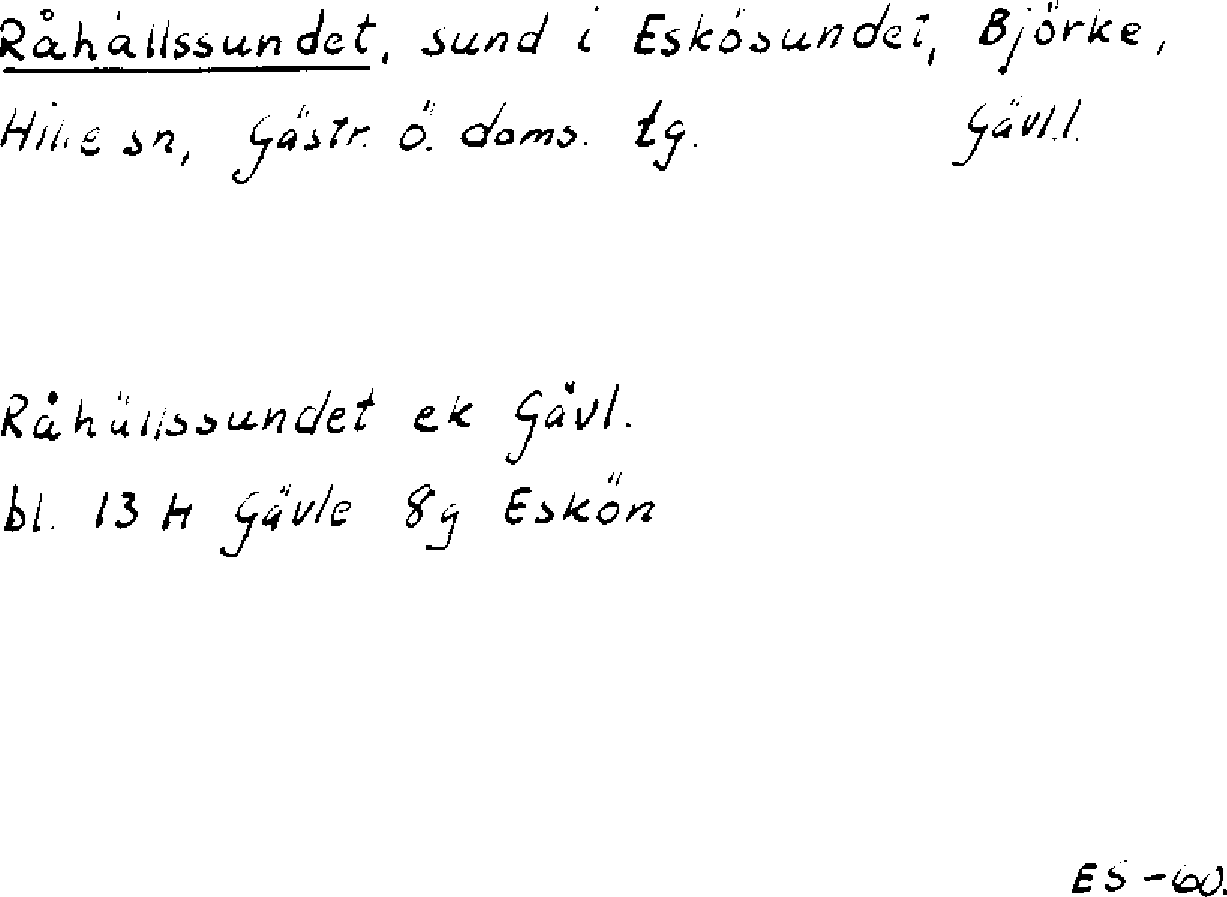 Råhällssundet, sund i Eskösundet, Björke,
Hille sn, Gästr. ö. doms. tg. Gävl.l.
Råhällssundet ek Gävl.
bl. 13 H Gävle 8g Eskön
ES -60.